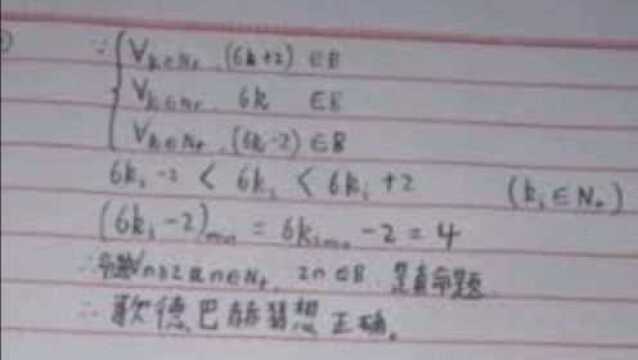 ∵ { ∀k∈N₊, (6k+2) ∈B
∀k∈N₊, 6k ∈B
∀k∈N₊, (6k-2) ∈B
6k₁-2 < 6k₁ < 6k₁+2 (k₁∈N₊)
(6k₁-2)min = 6k₁min -2 = 4
∴命题∀n≥2且n∈N₊, 2n∈B 是真命题
∴歌德巴赫猜想正确。